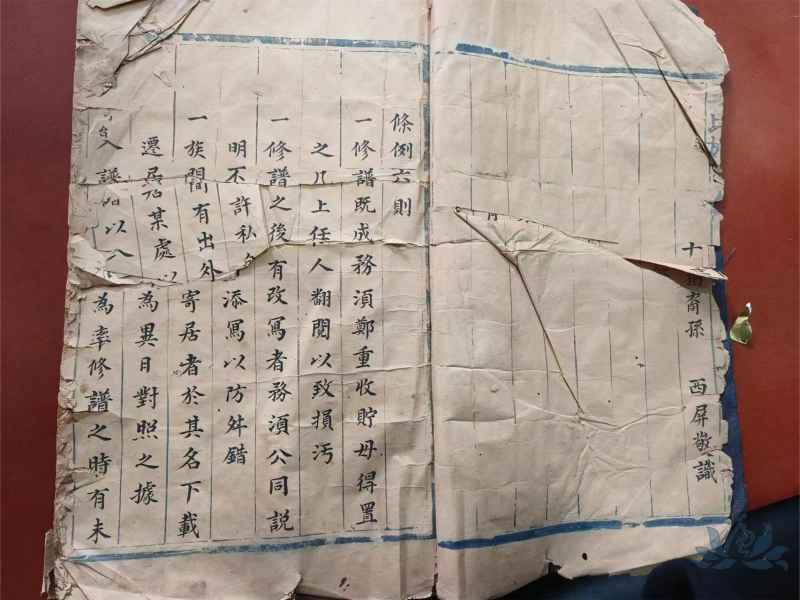 十
裔孫　西屏敬識
條例六則
一修譜既成務湏鄭重收貯毋得置
之几上任人翻閱以致損汚
一修譜之後有改寫者務湏公同説
明不許私自添寫以防舛錯
一族間有出外寄居者於其名下載
遷居某處以為異日對照之據
以為率修譜之時有未